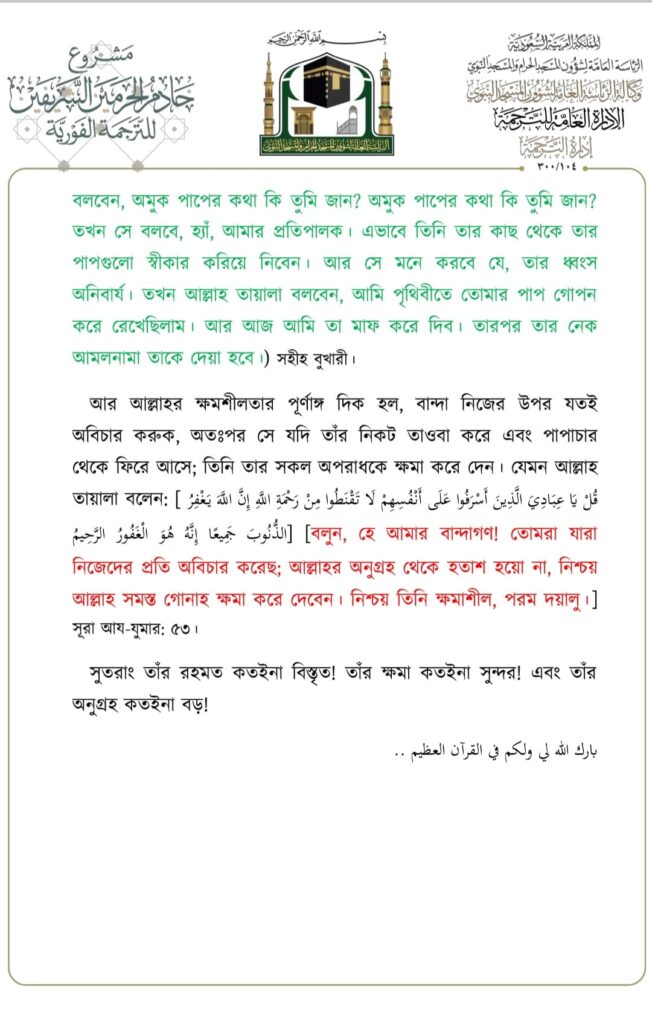 مشروع
خادم الحرمين الشريفين
للترجمة الفورية
بسم الله الرحمن الرحيم
الرئاسة العامة لشؤون المسجد الحرام والمسجد النبوي
المملكة العربية السعودية
الرئاسة العامة لشؤون المسجد الحرام والمسجد النبوي
وكالة الرئاسة العامة لشؤون المسجد النبوي
الإدارة العامة للترجمة
إدارة الترجمة
٣٠٠/١٠٤
বলবেন, অমুক পাপের কথা কি তুমি জান? অমুক পাপের কথা কি তুমি জান?
তখন সে বলবে, হ্যাঁ, আমার প্রতিপালক। এভাবে তিনি তার কাছ থেকে তার
পাপগুলো স্বীকার করিয়ে নিবেন। আর সে মনে করবে যে, তার ধ্বংস
অনিবার্য। তখন আল্লাহ তায়ালা বলবেন, আমি পৃথিবীতে তোমার পাপ গোপন
করে রেখেছিলাম। আর আজ আমি তা মাফ করে দিব। তারপর তার নেক
আমলনামা তাকে দেয়া হবে।) সহীহ বুখারী।
আর আল্লাহর ক্ষমশীলতার পূর্ণাঙ্গ দিক হল, বান্দা নিজের উপর যতই
অবিচার করুক, অতঃপর সে যদি তাঁর নিকট তাওবা করে এবং পাপাচার
থেকে ফিরে আসে; তিনি তার সকল অপরাধকে ক্ষমা করে দেন। যেমন আল্লাহ
তায়ালা বলেন: [ قُلْ يَا عِبَادِيَ الَّذِينَ أَسْرَفُوا عَلَى أَنْفُسِهِمْ لَا تَقْنَطُوا مِنْ رَحْمَةِ اللَّهِ إِنَّ اللَّهَ يَغْفِرُ
الذُّنُوبَ جَمِيعًا إِنَّهُ هُوَ الْغَفُورُ الرَّحِيمُ] [বলুন, হে আমার বান্দাগণ! তোমরা যারা
নিজেদের প্রতি অবিচার করেছ; আল্লাহর অনুগ্রহ থেকে হতাশ হয়ো না, নিশ্চয়
আল্লাহ সমস্ত গোনাহ ক্ষমা করে দেবেন। নিশ্চয় তিনি ক্ষমাশীল, পরম দয়ালু।]
সূরা আয-যুমার: ৫৩।
সুতরাং তাঁর রহমত কতইনা বিস্তৃত! তাঁর ক্ষমা কতইনা সুন্দর! এবং তাঁর
অনুগ্রহ কতইনা বড়!
بارك الله لي ولكم في القرآن العظيم ..